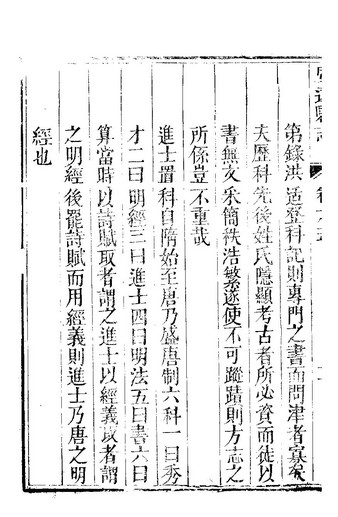 第錄洪适登科記則專門之書而問津者寡矣
夫歷科先後姓氏隱顯考古者所必資而徒以
書無文采簡秩浩繁遂使不可蹤蹟則方志之
所係豈不重哉
進士置科自隋始至唐乃盛唐制六科一曰秀
才二曰明經三曰進士四曰明法五曰書六曰
算當時以詩賦取者謂之進士以經義取者謂
之明經後罷詩賦而用經義則進士乃唐之明
經也